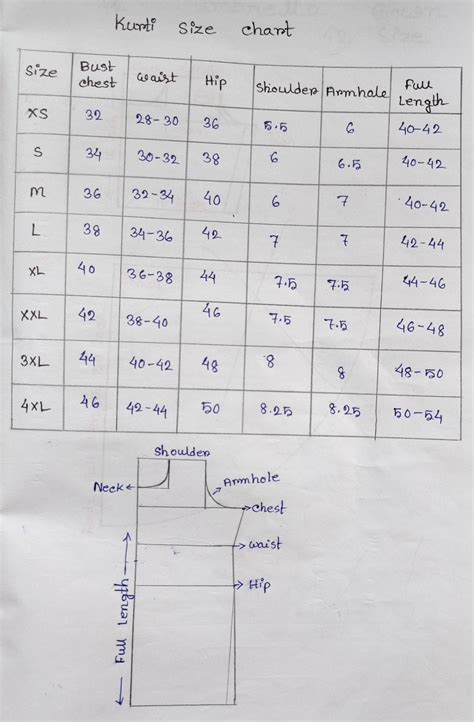 Kurti Size Chart
Size Bust chest Waist Hip Shoulder Armhole Full Length
XS 32 28-30 36 5.5 6 40-42
S 34 30-32 38 6 6.5 40-42
M 36 32-34 40 6 7 40-42
L 38 34-36 42 7 7 42-44
XL 40 36-38 44 7.5 7.5 44-46
XXL 42 38-40 46 7.5 7.5 46-48
3XL 44 40-42 48 8 8 48-50
4XL 46 42-44 50 8.25 8.25 50-54
Shoulder
Neck
Armhole
Chest
Waist
Hip
Full Length